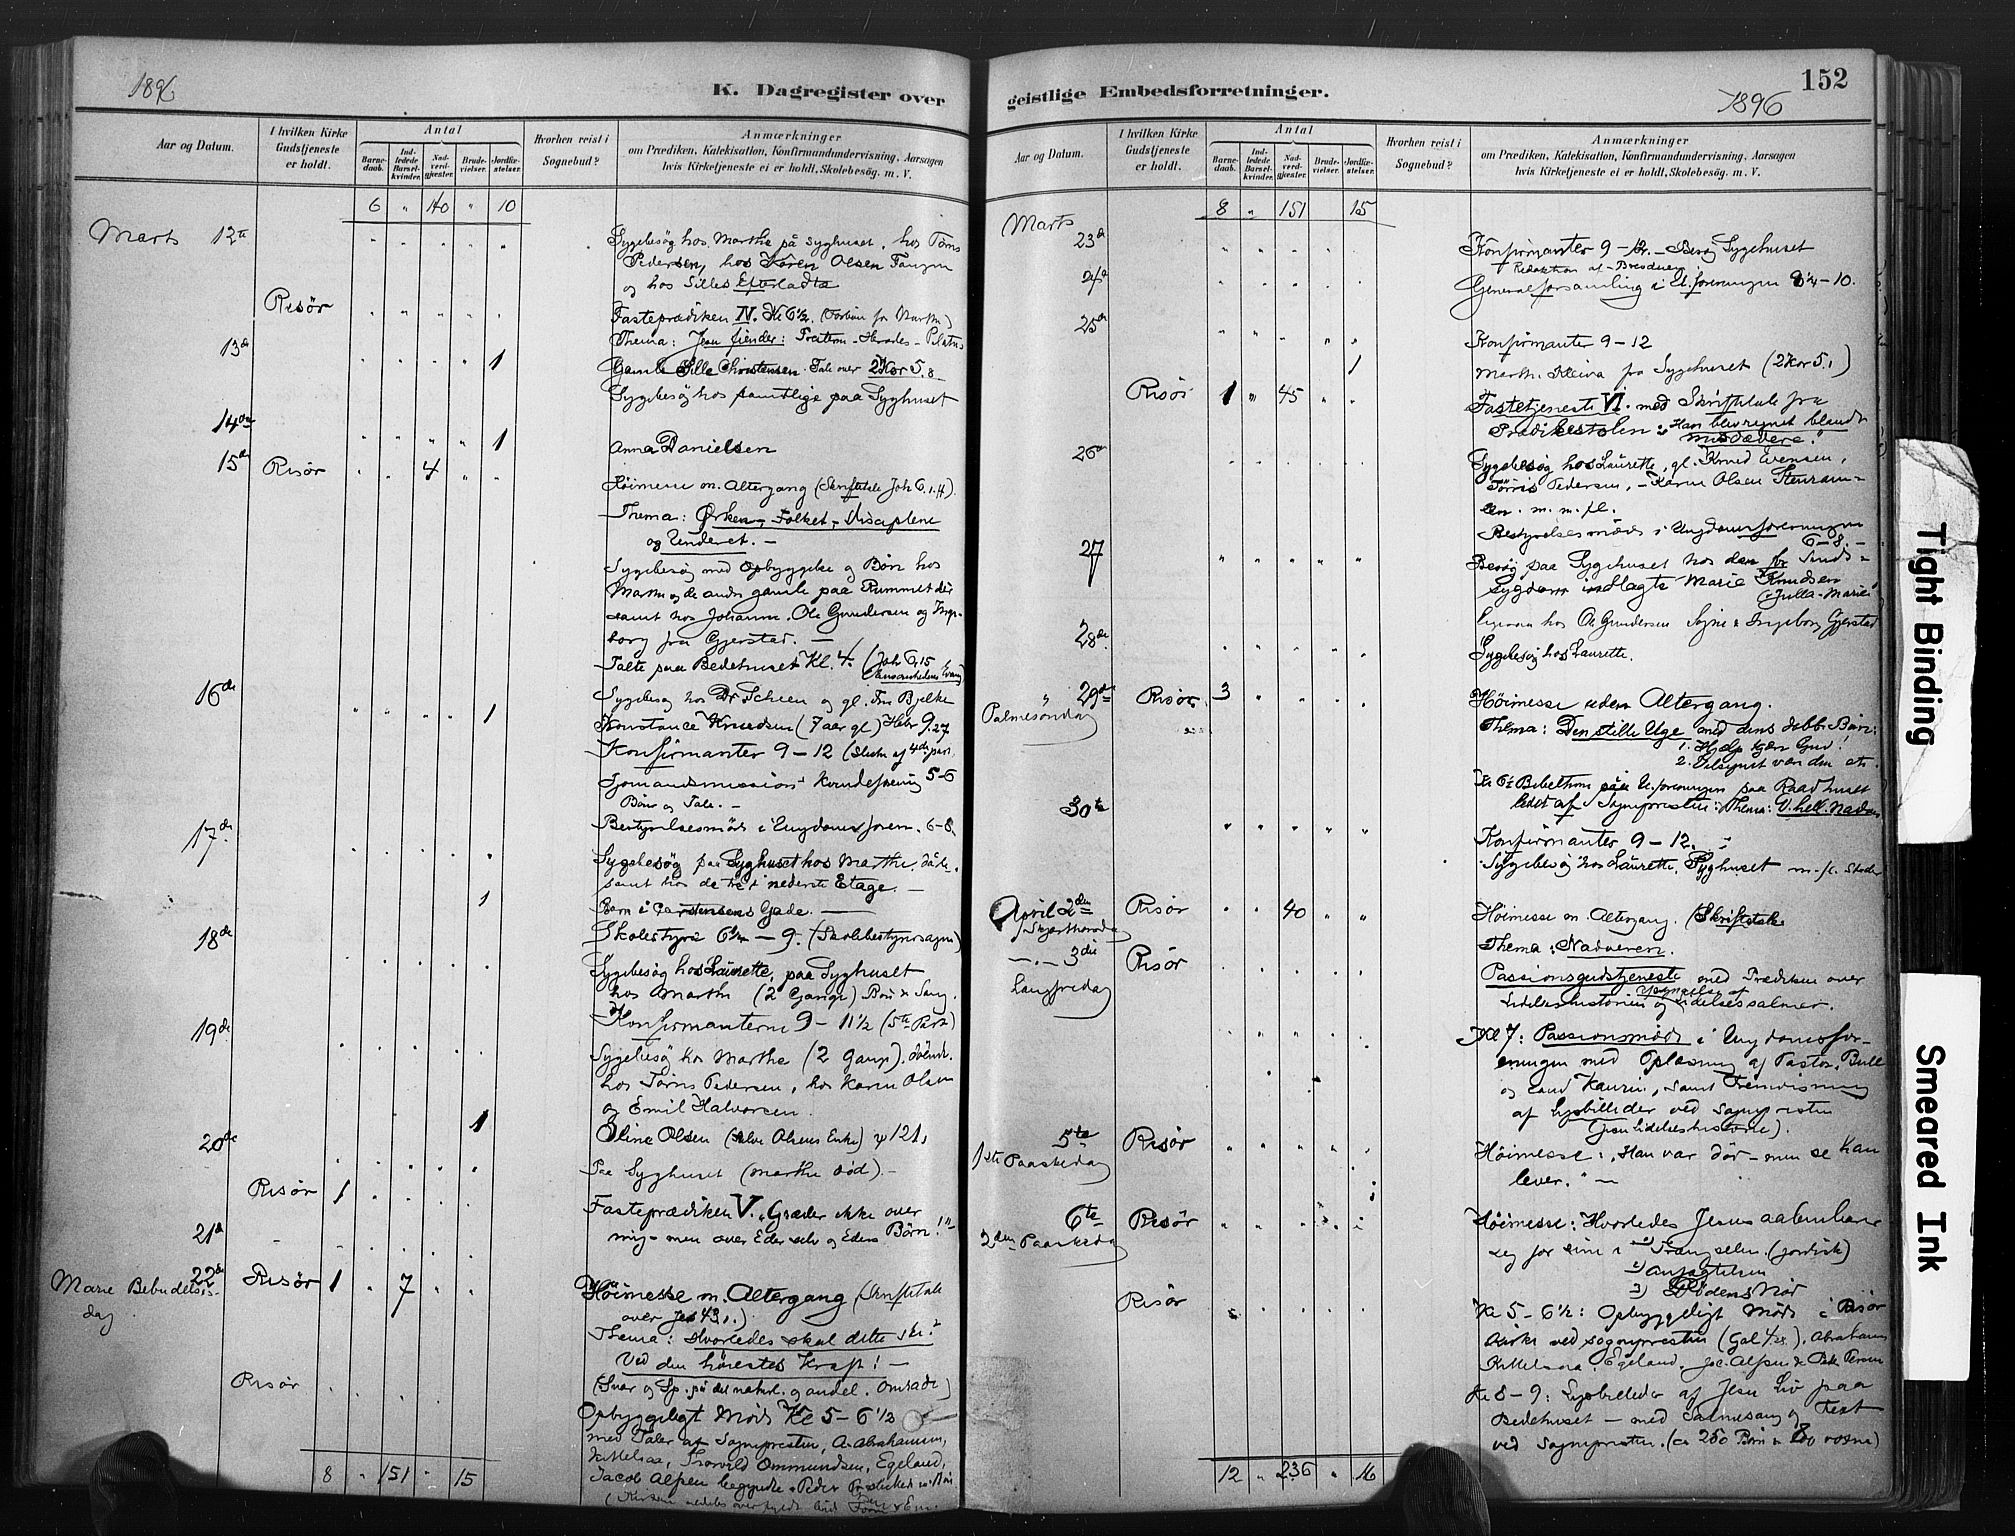 1896
K. Dagregister over
Aar og Datum.
I hvilken Kirke Gudstjeneste er holdt.
Antal
Barne-daab.
Ind-ledede Barsel-kvinder.
Nad-verd-gjæster.
Brude-vielser.
Jordfæ-stelser.
Hvorhen reist i Sognebud?
Anmærkninger
om Prædiken, Katekisation, Konfirmandundervisning, Aarsagen
hvis Kirketjeneste ei er holdt, Skolebesøg. m. V.
6 " 140 " 10
Marts 12te
Sygebesøg hos Marthe på syghuset, hos Tørris
Pedersen, hos Karen Olsen Fangen
og hos Silles Efterladte
Risør
Fasteprædiken IV. Kl 6½
13de
Thema: Jesu fiender: Herodes - Pilatus
1
Gamle Sille Christensen. Tale over 2 Kor 5.8
Sygebesøg hos samtlige paa Syghuset
14de
1
Anna Danielsen
15de Risør 4
Høimesse m. Altergang (Skriftetale Joh 6.1.ff).
Thema: Ørken - Folket - Disciplene
og Underet. -
Sygebesøg med Opbyggelse og Bøn hos
Marthe og de andre gamle paa Rummet der
samt hos Johanne, Ole Gundersen og Inge-
borg fra Gjerstad. -
Talte paa Bedehuset Kl. 4. (Joh 6.15
16de
Sygebesøg hos Dr Scheen og gl. Fru Bjelke
1
Konstance Knudsen (7 aar gl) Hebr 9.27
Konfirmanter 9-12
Sømandsmission Kvindeforening 5-6
Bøn og Tale. -
17de
Bestyrelsesmøde i Ungdomsforen. 6-8.
Sygebesøg paa Syghuset hos Marthe,
samt hos de tre i nederste Etage. -
1
Barn i Carstensens Gade. -
18de
Skolestyre 6½ - 9. (Skolebestyrersagen)
Sygebesøg hos Laurette, paa Syghuset
hos Marthe (2 Gange) Bøn & Sang.
19de
Konfirmanterne 9-11½ (5te Part)
Sygebesøg hos Marthe (2 Gange). døende.
hos Tørris Pedersen, hos Karen Olsen
og Emil Halvorsen.
1
Oline Olsen
20de
Paa Syghuset (Marthe død). -
Risør 1
Fasteprædiken V. "Græder ikke over
mig - men over Eder selv og Eders Børn!"
21de
22de
Marie Bebudelses-
dag
Risør 1 " 7
Høimesse m. Altergang (Skriftetale
over Jes 43.1.)
Thema: Hvorledes skal dette ske?
Ved den høiestes Kraft! -
Risør
Opbyggeligt Møde Kl 5-6½
med Taler af Sognepresten, A. Abrahamsen,
Kittelsaa, Thorvald Ommundsen, Egeland,
8 " 151 " 15
geistlige Embedsforretninger.
152
1896
Aar og Datum.
I hvilken Kirke Gudstjeneste er holdt.
Antal
Barne-daab.
Ind-ledede Barsel-kvinder.
Nad-verd-gjæster.
Brude-vielser.
Jordfæ-stelser.
Hvorhen reist i Sognebud?
Anmærkninger
om Prædiken, Katekisation, Konfirmandundervisning, Aarsagen
hvis Kirketjeneste ei er holdt, Skolebesøg. m. V.
8 " 151 15
Marts
23de
Konfirmanter 9-12. - Besøg Sygehuset
24de
Generalforsamling i U.foreningen 8¼-10.
25de
Konfirmanter 9-12
1
Marthe Kleiva fra Sygehuset (2 Kor 5.1)
Risør 1 " 45 " "
Fastetjeneste VI. med Skriftetale fra
Prædikestolen: "Han blev regnet blandt
misdædere."
26de
Sygebesøg hos Laurette, gl. Knud Evensen,
Tørris Pedersen, - Karen Olsen
m. m. fl.
Bestyrelsesmøde i Ungdomsforeningen
6-8. -
27
Besøg paa Sygehuset hos den for Sinds-
sygdom indlagte Marie Knudsen
(Julla-Marie)
Ligesaa hos Ole Gundersen Søgne & Ingeborg Gjerstad
28de
Sygebesøg hos Laurette.
" 29de Risør 3
Palmesøndag
Høimesse uden Altergang.
Thema: Den stille Uge med dens dobb. Bøn:
1. Hjælp kjære Gud!
2. Velsignet være den etc.
Kl 6½ Bibeltime U.foreningen paa Raadhuset
ledet af Sognepresten: Thema: D. hell. Nadver
30te
Konfirmanter 9-12.
Sygebesøg hos Laurette. Syghuset
April 2den Risør 40
Skjærthorsdag
Høimesse m. Altergang. (Skriftetale
Thema: Nadveren.
3die Risør
Langfredag
Passionsgudstjeneste med Prædiken over
Lidelseshistorien og Lidelsessalmer.
Kl 7: Passionsmøde i Ungdomsfor-
eningen med Oplæsning af Pastor Bull
og Cand Kaurin, samt Fremvisning
af Lysbilleder ved Sognepresten
(Jesu Lidelseshistorie).
5te Risør
1ste Paaskedag
Høimesse: "Han var død - men se han
lever." -
6te Risør
2den Paaskedag
Høimesse: Hvorledes Jesus aabenbarer
sig for sine i 1) Trængselen (jordisk)
2) anfægtelsen
3) Dødens Nød
Risør
Kl 5-6½: Opbyggeligt Møde i Risør
Kirke ved sognepresten
Kittelsaa, Egeland,
Kl 8-9: Lysbilleder af Jesu Liv paa
Bedehuset - med Salmesang og Text
ved Sognepresten. (ca 250 Børn & 200 voxne)
12 " 236 " 16
Tight Binding
Smeared Ink